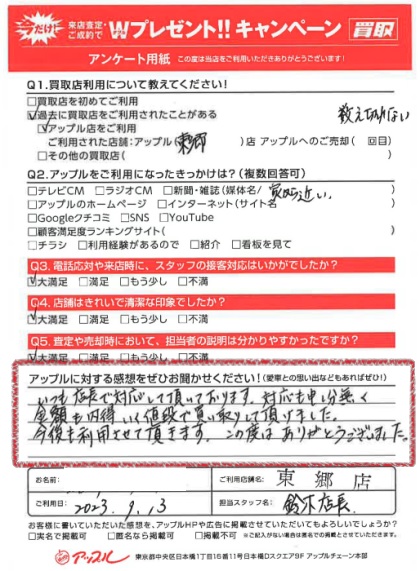 今だけ! 来店査定・ご成約で Wプレゼント!! キャンペーン 買取
アンケート用紙 この度は当店をご利用いただきありがとうございます!
Q1.買取店利用について教えてください!
□買取店を初めてご利用
☑過去に買取店をご利用されたことがある 数え切れない
☑アップル店をご利用
ご利用された店舗:アップル(東郷)店 アップルへのご売却( 回目)
□その他の買取店( )
Q2.アップルをご利用になったきっかけは?(複数回答可)
□テレビCM □ラジオCM □新聞・雑誌(媒体名/ 家から近い。
□アップルのホームページ □インターネット(サイト名
□Googleクチコミ □SNS □YouTube
□顧客満足度ランキングサイト( )
□チラシ □利用経験があるので □紹介 □看板を見て
Q3.電話応対や来店時に、スタッフの接客対応はいかがでしたか?
☑大満足 □満足 □もう少し □不満
Q4.店舗はきれいで清潔な印象でしたか?
☑大満足 □満足 □もう少し □不満
Q5.査定や売却時において、担当者の説明は分かりやすかったですか?
☑大満足 □満足 □もう少し □不満
アップルに対する感想をぜひお聞かせください!(愛車との思い出などもあればぜひ!)
いつも店長で対応して頂いております。対応も申し分無く
金額も内得いく値段で買い取りして頂けました。
今後も利用させて頂きます。この度はありがとうございました。
お名前: ご利用店舗名: 東郷店
ご利用日: 2023.9.13 担当スタッフ名: 鈴木店長
お客様に書いていただいた感想を、アップルHPや広告に掲載させていただいてもよろしいでしょうか?
□実名で掲載可 □匿名なら掲載可 □掲載不可 ※ご記入がない場合は匿名での掲載とさせていただきます。
アップル 東京都中央区日本橋1丁目16番11号日本橋Dスクエア9F アップルチェーン本部